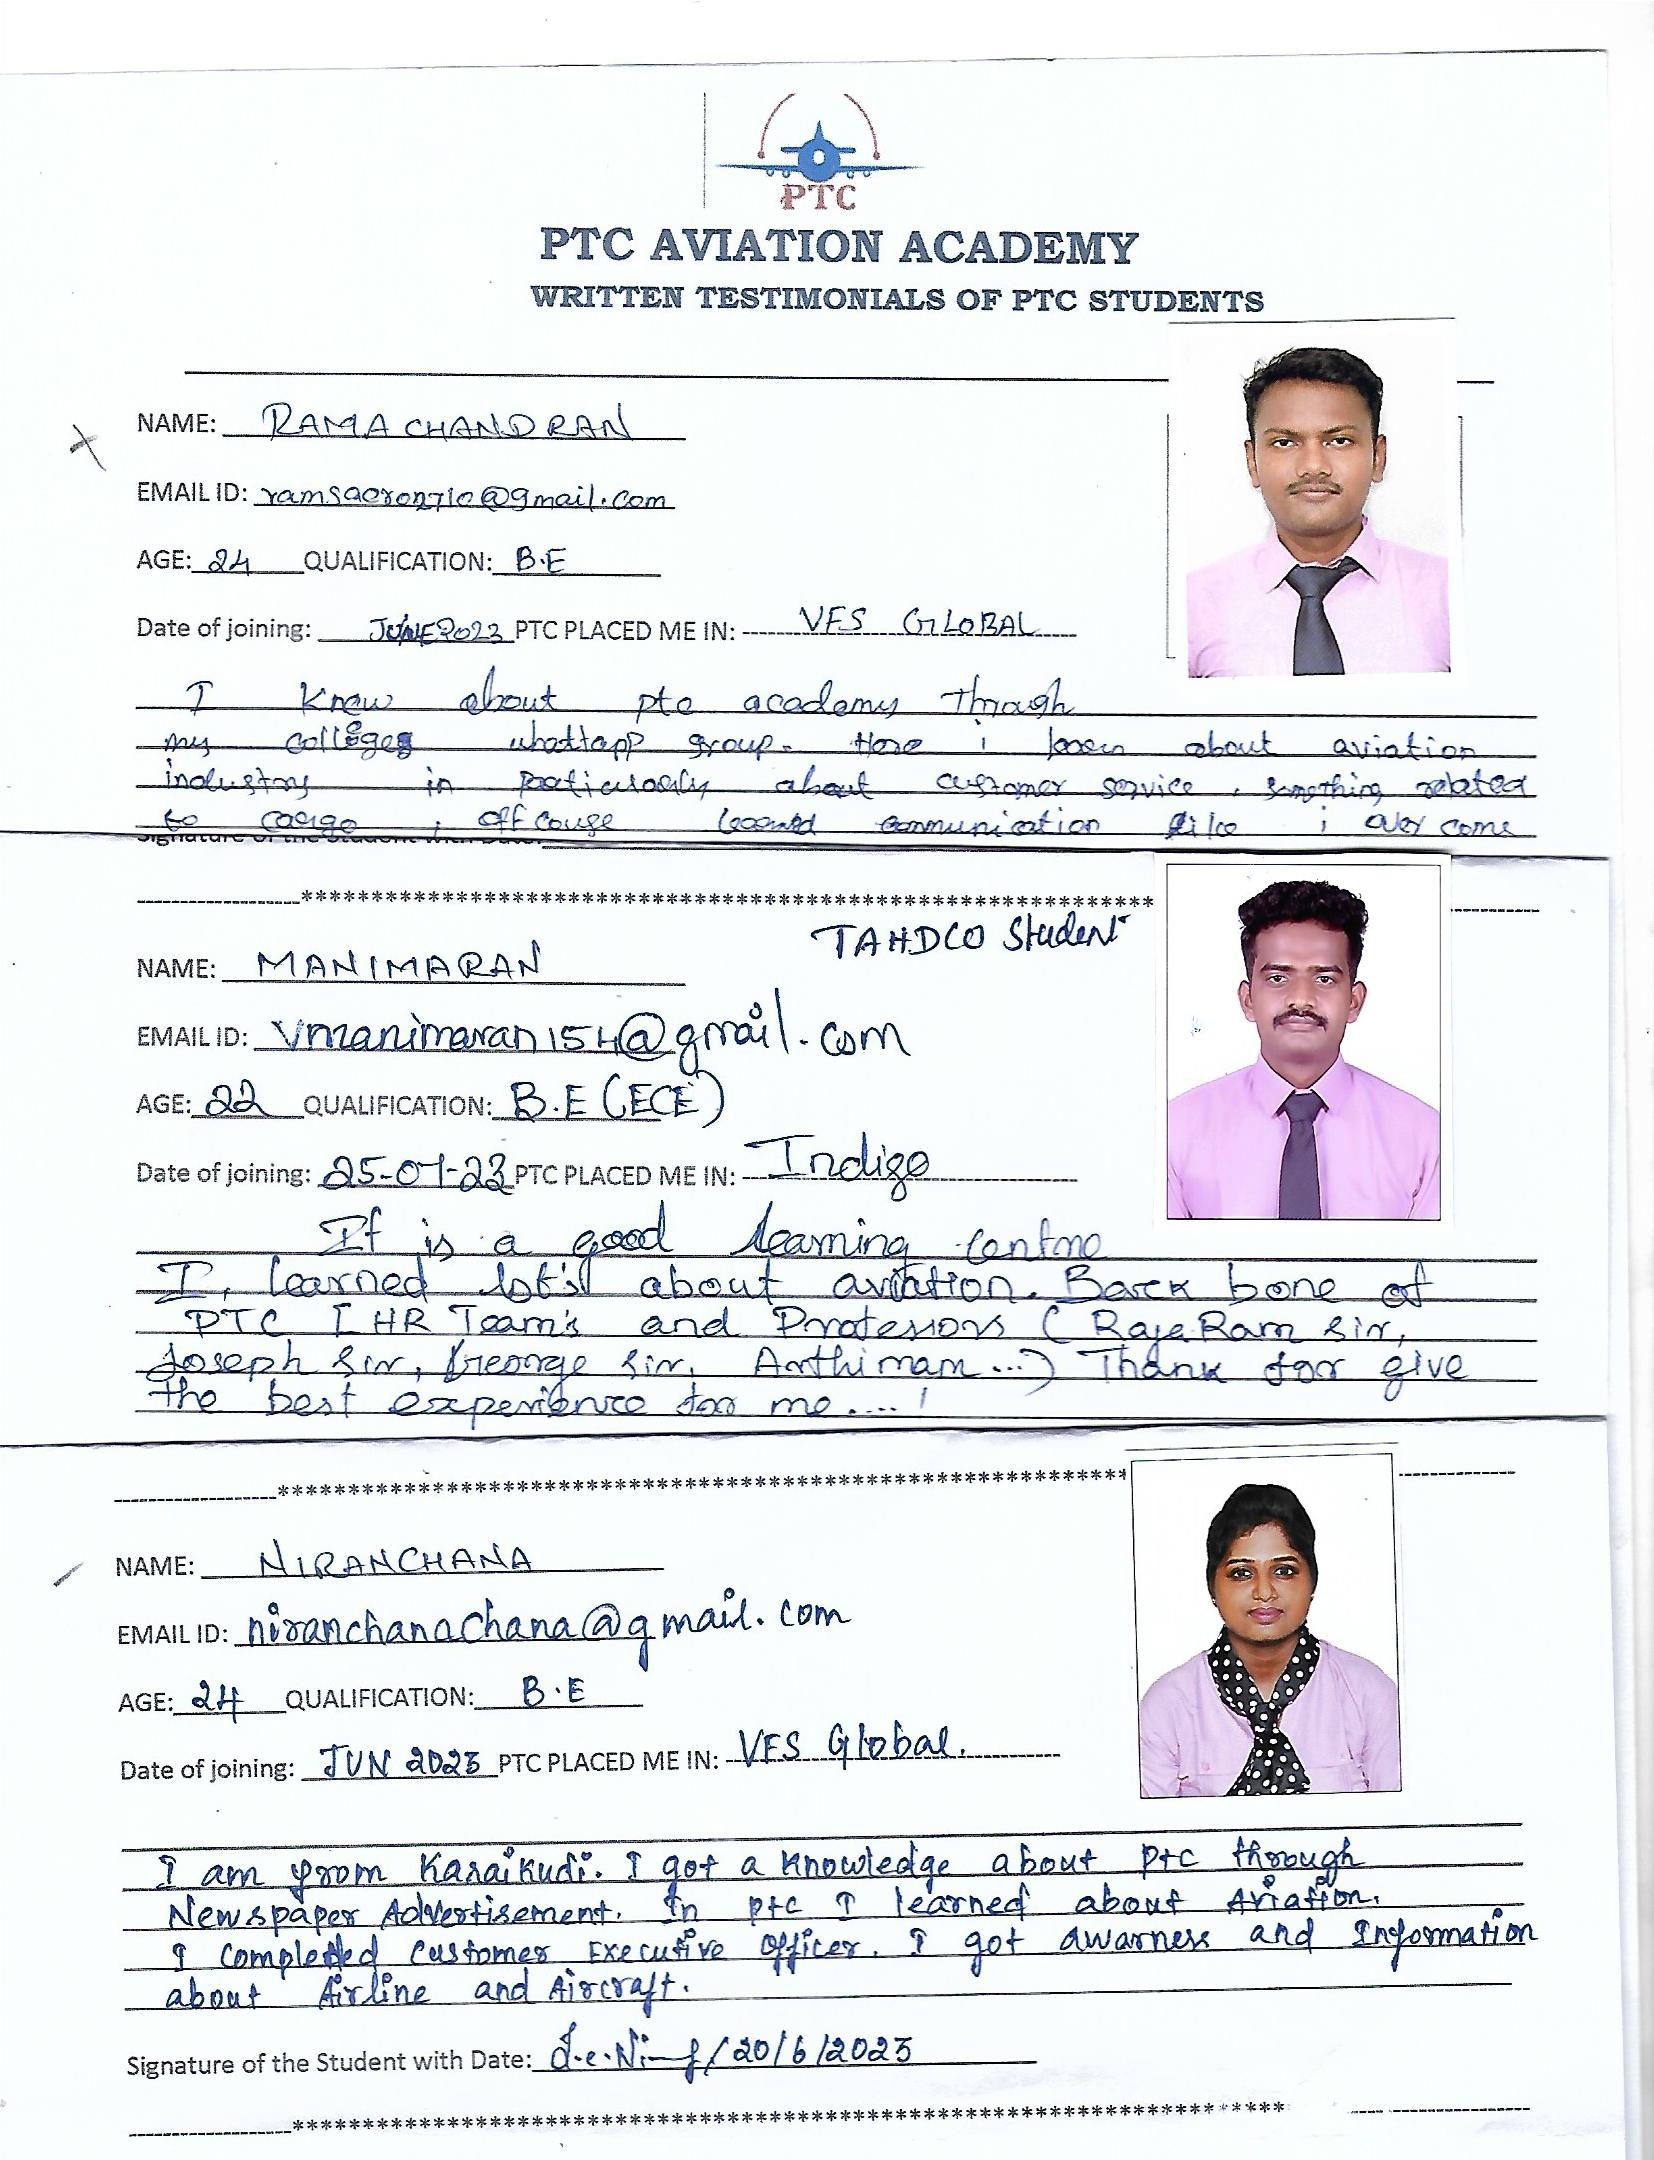 PTC
PTC AVIATION ACADEMY
WRITTEN TESTIMONIALS OF PTC STUDENTS
NAME: RAMACHANDRAN
EMAIL ID: @gmail.com
AGE: 24 QUALIFICATION: B.E
Date of joining: JUNE 2023 PTC PLACED ME IN: VFS GLOBAL
I know about ptc academy through
my colleges whattapp group. Here i learn about aviation
industry in particularly about customer service, something related
to cargo, off couge learned communication like i over come
Signature of the Student with Date:
********************************************************************
TAHDCO Student
NAME: MANIMARAN
EMAIL ID: vmanimaran154@gmail.com
AGE: 22 QUALIFICATION: B.E (ECE)
Date of joining: 25-07-23 PTC PLACED ME IN: Indigo
It is a good learning centre
I, learned lot's about aviation. Back bone of
PTC HR Team's and Professors (RajaRam sir,
Joseph sir, George sir, Arthi mam...) Thank for give
the best experience for me....!
********************************************************************
NAME: NIRANCHANA
EMAIL ID: niranchanachana@gmail.com
AGE: 24 QUALIFICATION: B.E
Date of joining: JUN 2023 PTC PLACED ME IN: VFS Global.
I am from Karaikudi. I got a knowledge about ptc through
Newspaper Advertisement. In ptc I learned about Aviation.
I completed Customer Executive Officer. I got awarness and Information
about Airline and Aircraft.
Signature of the Student with Date: /20/6/2023
********************************************************************